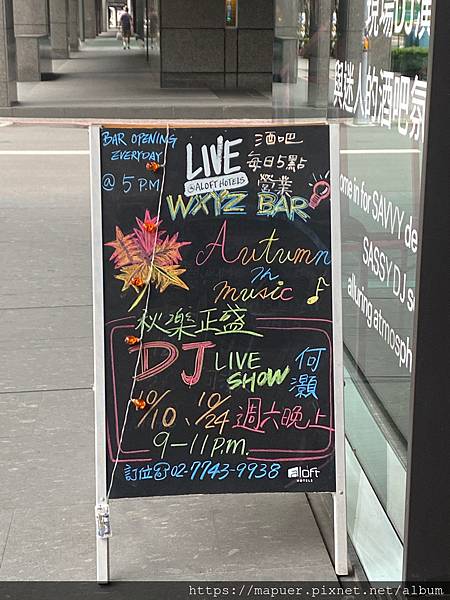 現場DJ廣
與迷人的酒吧氛
BAR OPENING
EVERYDAY
@ 5 P.M
LIVE
@ALOFT HOTELS
酒吧
每日5點
營業
WXYZ BAR
Autumn
in
music
秋樂正盛
DJ LIVE
SHOW
何
灝
10/10、10/24 週六晚上
9-11 p.m.
訂位☎02-7743-9938
aloft
HOTELS
ome in for SAVVY de
SASSY DJ s
alluring atmosph
https://mapuer.pixnet.net/album